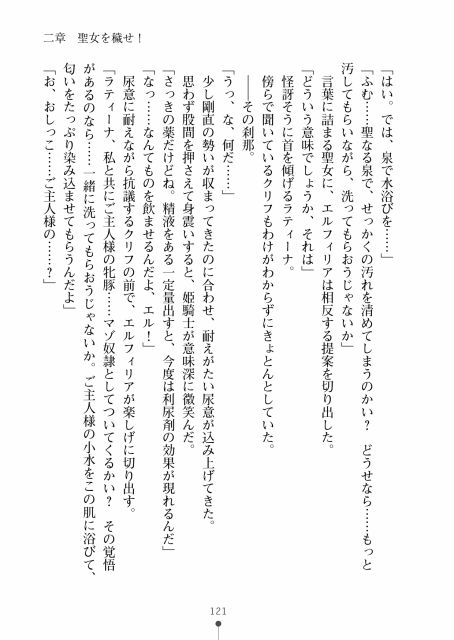 二章　聖女を穢せ！
「はい。では、泉で水浴びを……」
「ふむ……聖なる泉で、せっかくの汚れを清めてしまうのかい？　どうせなら……もっと
汚してもらいながら、洗ってもらおうじゃないか」
　言葉に詰まる聖女に、エルフィリアは相反する提案を切り出した。
「どういう意味でしょうか、それは」
　怪訝そうに首を傾げるラティーナ。
　傍らで聞いているクリフもわけがわからずにきょとんとしていた。
　――その刹那。
「うっ、な、何だ……」
　少し剛直の勢いが収まってきたのに合わせ、耐えがたい尿意が込み上げてきた。
　思わず股間を押さえて身震いすると、姫騎士が意味深に微笑んだ。
「さっきの薬だけどね。精液をある一定量出すと、今度は利尿剤の効果が現れるんだ」
「なっ……なんてものを飲ませるんだよ、エル！」
　尿意に耐えながら抗議するクリフの前で、エルフィリアが楽しげに切り出す。
「ラティーナ、私と共にご主人様の牝豚……マゾ奴隷としてついてくるかい？　その覚悟
があるのなら……一緒に洗ってもらおうじゃないか。ご主人様の小水をこの肌に浴びて、
匂いをたっぷり染み込ませてもらうんだよ」
「お、おしっこ……ご主人様の……？」
121